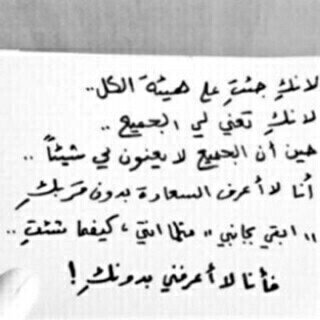 لانكِ جئتِ على هيئة الكل..
لانكِ تعني لي الجميع..
حين أن الجميع لا يعنون لي شيئاً..
أنا لا أعرف السعادة بدون قربكِ
"ابقي بجانبي" مثلما انتي، كيفما شئتِ..
فأنا لا أعرفني بدونكِ!